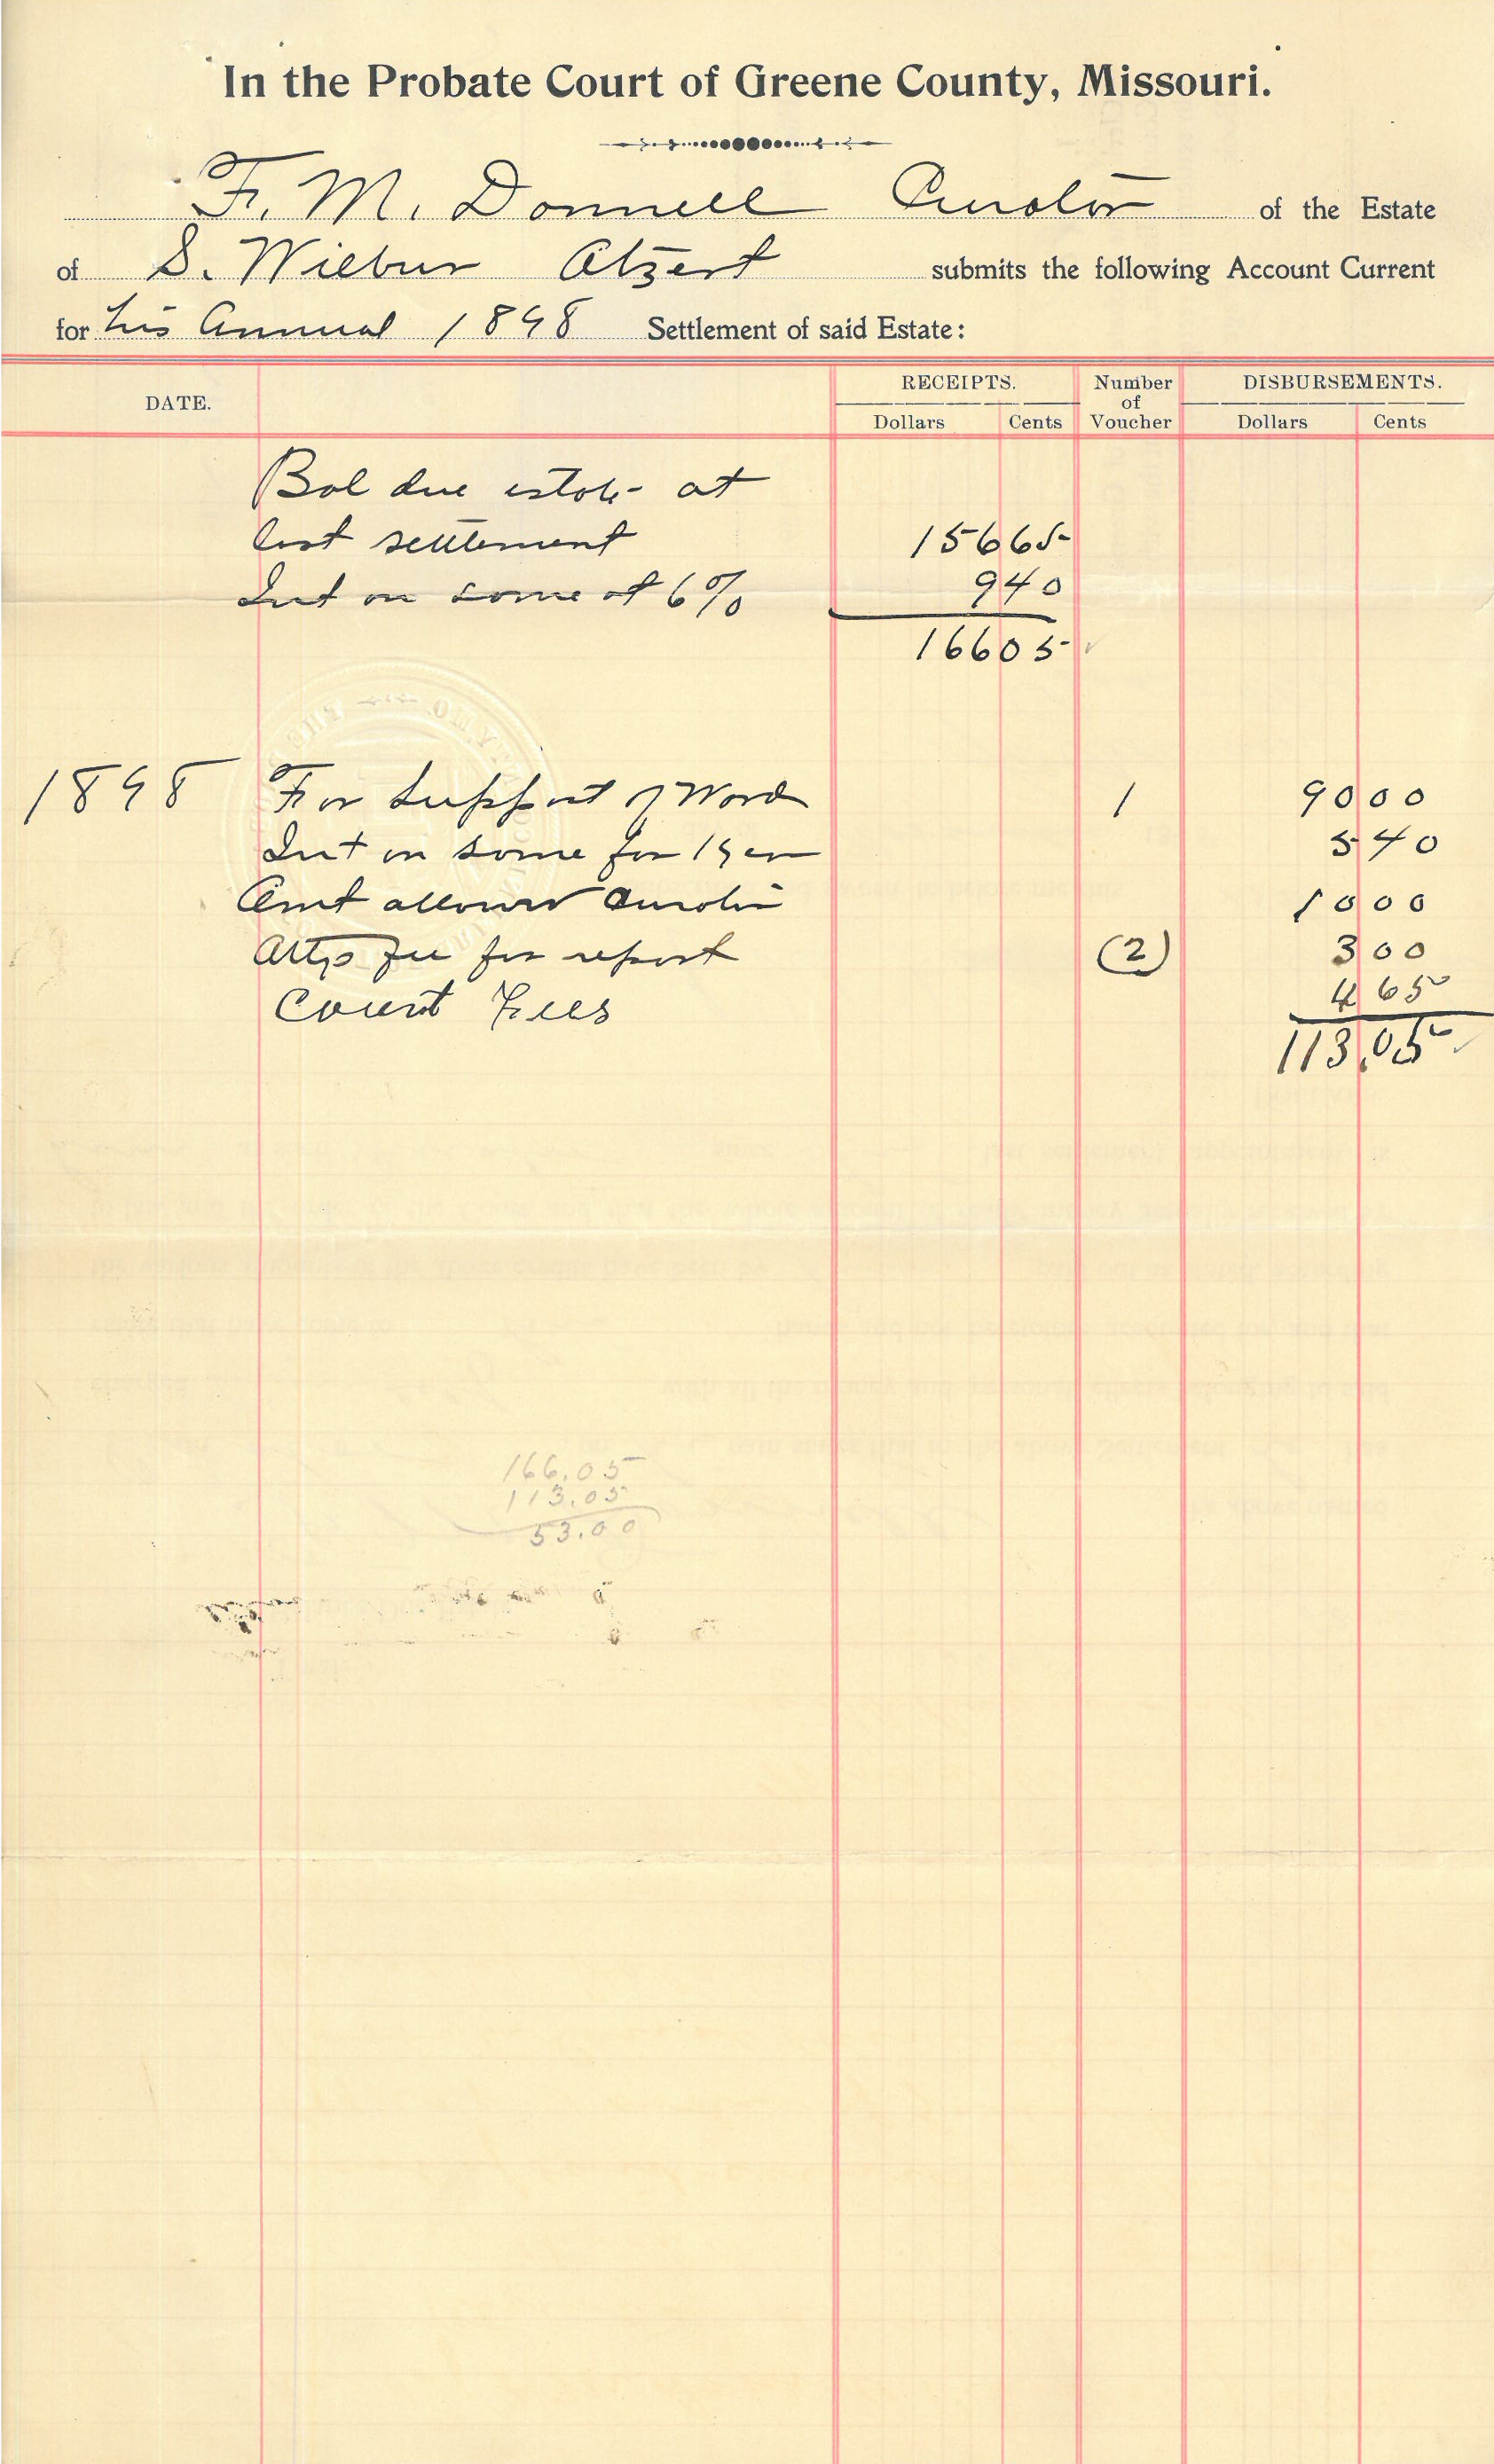 In the Probate Court of Greene County, Missouri.
F. M. Donnell Curator of the Estate
of S. Wilbur Atzert submits the following Account Current
for his Annual 1898 Settlement of said Estate:
DATE. RECEIPTS. Number of Voucher DISBURSEMENTS.
Dollars Cents Dollars Cents
Bal due estate at
last settlement 156 65
Int on same at 6% 9 40
166 05
1898 For support of Ward 1 90 00
Int on same for 1 year 5 40
Amt allowed Curator 10 00
Attys fee for report (2) 3 00
Court Fees 4 65
113.05
166.05
113.05
53.00